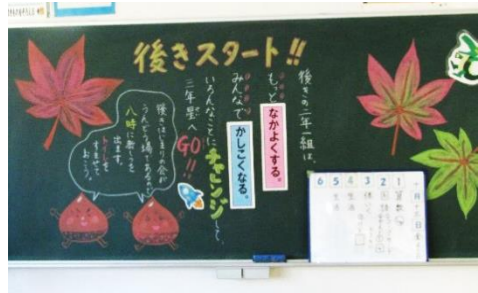 後きスタート!!
後きの二年一組は、
もっと なかよくする。
みんなで かしこくなる。
いろんなことにチャレンジして、
三年生へGO!!
後きはじまりの会が
うんどう場であるので
八時に教しつを
出ます。
トイレを
すませて
おこう。
1 算数
2 国語
3
4
5
6